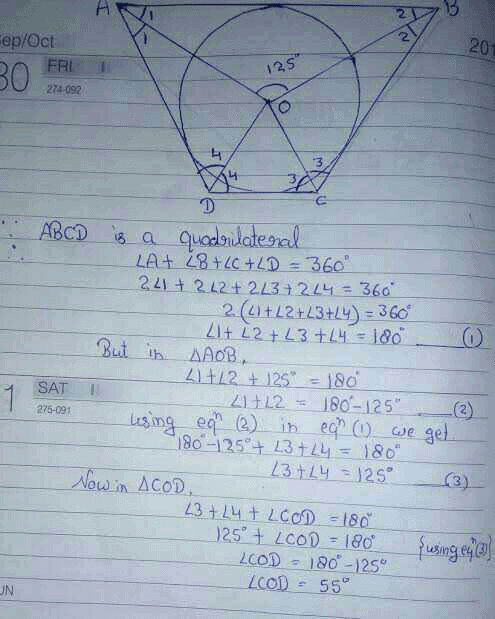 A 1 1 2 2 B
Sep/Oct 201
30 FRI
274-092
125°
O
4 4 3 3
D C
∵ ABCD is a quadrilateral
∴ ∠A + ∠B + ∠C + ∠D = 360°
2∠1 + 2∠2 + 2∠3 + 2∠4 = 360°
2(∠1+∠2+∠3+∠4) = 360°
∠1 + ∠2 + ∠3 + ∠4 = 180° (1)
But in △AOB,
∠1+∠2 + 125° = 180°
1 SAT
275-091
∠1+∠2 = 180°-125° (2)
using eqn (2) in eqn (1) we get
180°-125° + ∠3 + ∠4 = 180°
∠3 + ∠4 = 125° (3)
Now in △COD,
∠3 + ∠4 + ∠COD = 180°
125° + ∠COD = 180° {using eqn (3)}
∠COD = 180°-125°
∠COD = 55°
UN